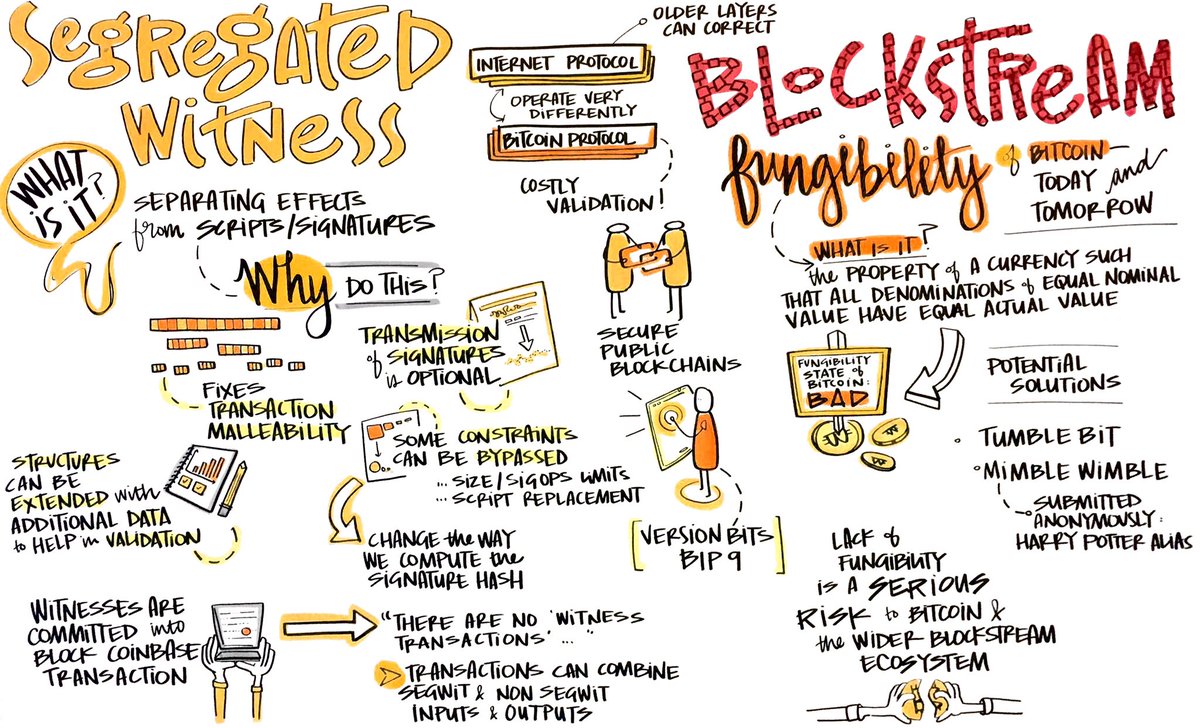 SEGREGATED
WITNESS
WHAT
IS IT?
SEPARATING EFFECTS
from SCRIPTS/SIGNATURES
WHY DO THIS?
FIXES
TRANSACTION
MALLEABILITY
TRANSMISSION
of SIGNATURES
is OPTIONAL
SOME CONSTRAINTS
CAN BE BYPASSED
... SIZE/SIGOPS LIMITS
... SCRIPT REPLACEMENT
STRUCTURES
CAN BE
EXTENDED with
ADDITIONAL DATA
to HELP in VALIDATION
CHANGE the WAY
WE COMPUTE the
SIGNATURE HASH
WITNESSES ARE
COMMITTED into
BLOCK COINBASE
TRANSACTION
"THERE ARE NO 'WITNESS
TRANSACTIONS' ... "
TRANSACTIONS CAN COMBINE
SEGWIT & NON SEGWIT
INPUTS & OUTPUTS
OLDER LAYERS
CAN CORRECT
INTERNET PROTOCOL
OPERATE VERY
DIFFERENTLY
BITCOIN PROTOCOL
COSTLY
VALIDATION!
SECURE
PUBLIC
BLOCKCHAINS
[VERSION BITS
BIP 9]
BLOCKSTREAM
fungibility of BITCOIN
TODAY and
TOMORROW
WHAT IS IT?
the PROPERTY of A CURRENCY SUCH
THAT ALL DENOMINATIONS of EQUAL NOMINAL
VALUE HAVE EQUAL ACTUAL VALUE
FUNGIBILITY
STATE of
BITCOIN:
BAD
POTENTIAL
SOLUTIONS
TUMBLE BIT
MIMBLE WIMBLE
SUBMITTED
ANONYMOUSLY:
HARRY POTTER ALIAS
LACK of
FUNGIBILITY
IS A SERIOUS
RISK to BITCOIN &
the WIDER BLOCKSTREAM
ECOSYSTEM